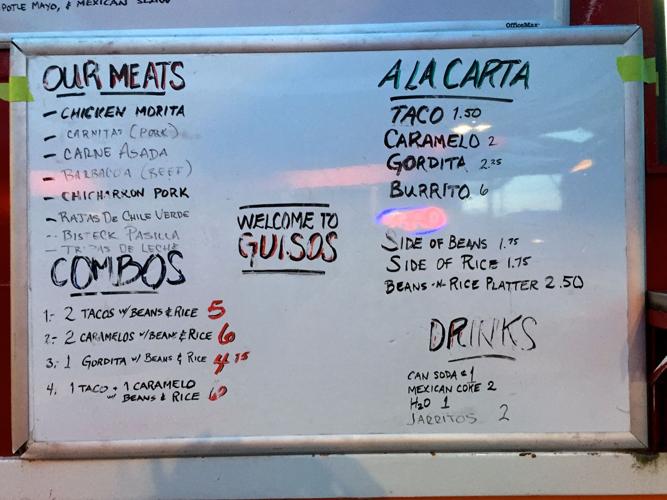 POTLE MAYO, & MEXICAN SLAW
OfficeMax
OUR MEATS
- CHICKEN MORITA
- CARNITAS (PORK)
- CARNE ASADA
- BARBACOA (BEEF)
- CHICHARRON PORK
- RAJAS DE CHILE VERDE
- BISTECK PASILLA
- TRIPAS DE LECHE
COMBOS
1.- 2 TACOS W/ BEANS & RICE 5
2.- 2 CARAMELOS W/ BEAN & RICE 6
3.- 1 GORDITA W/ BEANS & RICE 4.75
4. 1 TACO + 1 CARAMELO
W/ BEANS & RICE 6
WELCOME TO
GUISOS
A LA CARTA
TACO 1.50
CARAMELO 2
GORDITA 2.25
BURRITO 6
SIDE OF BEANS 1.75
SIDE OF RICE 1.75
BEANS -N- RICE PLATTER 2.50
DRINKS
CAN SODA $1
MEXICAN COKE 2
H2O 1
JARRITOS 2